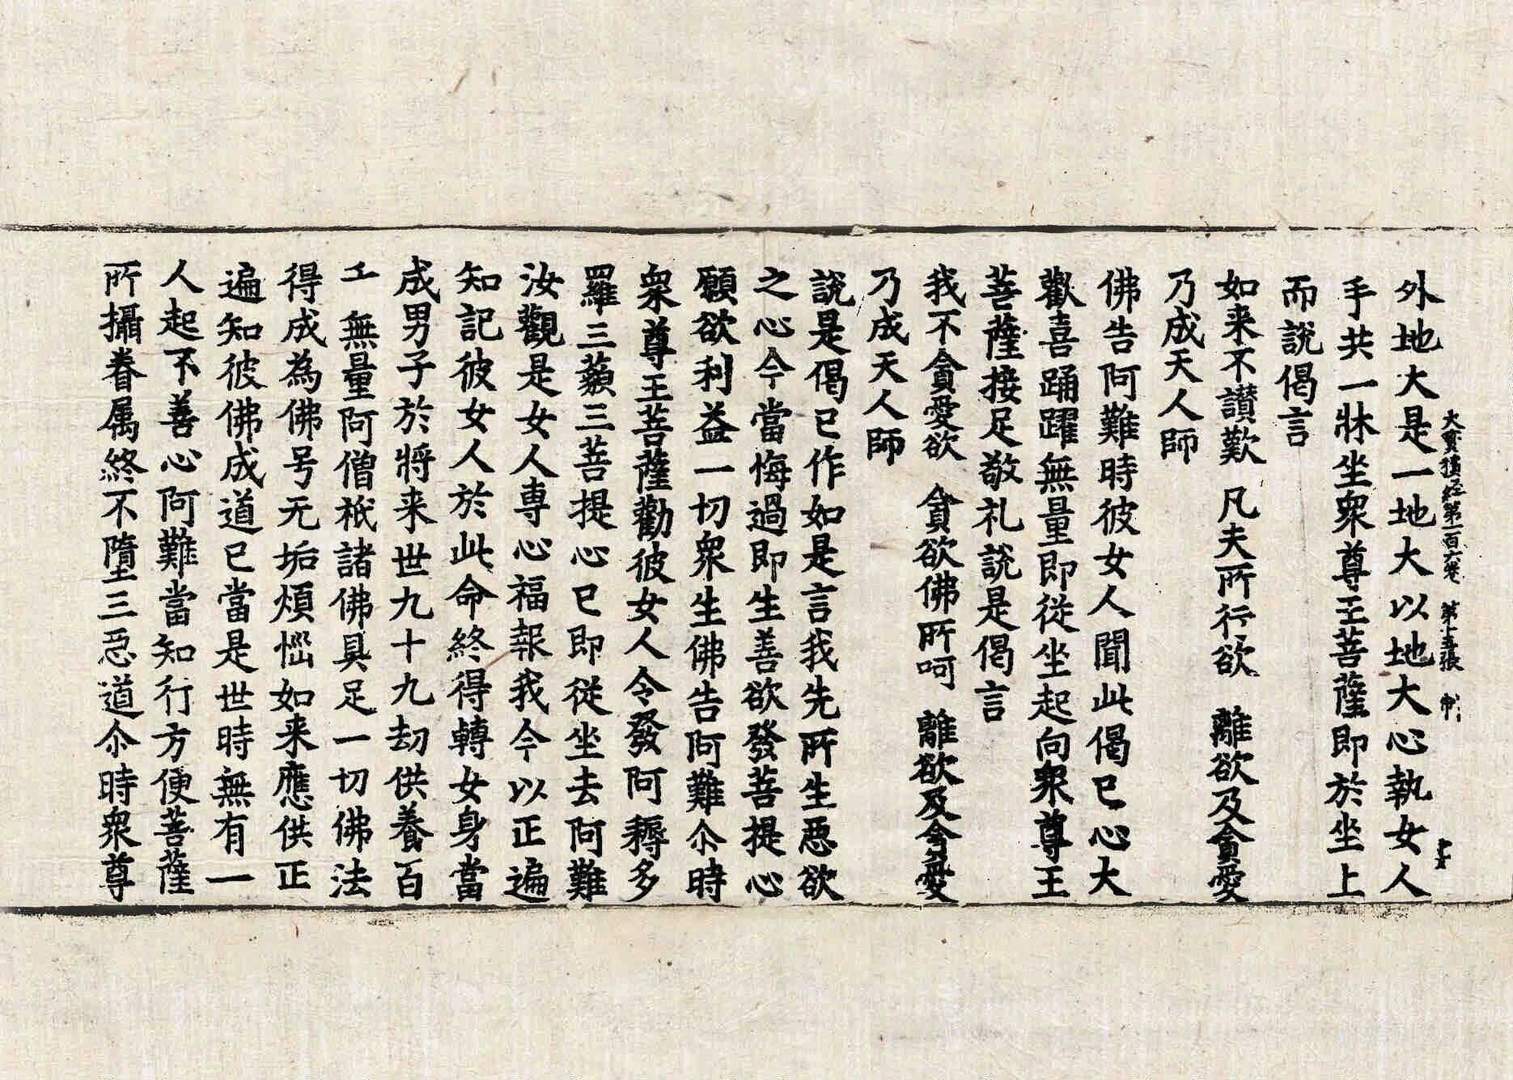 大寶積經第一百六卷 第十五張
外地大是一地大以地大心執女人
手共一牀坐衆尊王菩薩即於坐上
而說偈言
如来不讃歎 凡夫所行欲 離欲及貪愛
乃成天人師
佛告阿難時彼女人聞此偈已心大
歡喜踊躍無量即從坐起向衆尊王
菩薩接足敬礼說是偈言
我不貪愛欲 貪欲佛所呵 離欲及貪愛
乃成天人師
說是偈已作如是言我先所生惡欲
之心今當悔過即生善欲發菩提心
願欲利益一切衆生佛告阿難尒時
衆尊王菩薩勸彼女人令發阿耨多
羅三藐三菩提心已即從坐去阿難
汝觀是女人専心福報我今以正遍
知記彼女人於此命終得轉女身當
成男子於將来世九十九劫供養百
千無量阿僧祇諸佛具足一切佛法
得成為佛号无垢煩惱如来應供正
遍知彼佛成道已當是世時無有一
人起不善心阿難當知行方便菩薩
所攝眷属終不墮三惡道尒時衆尊